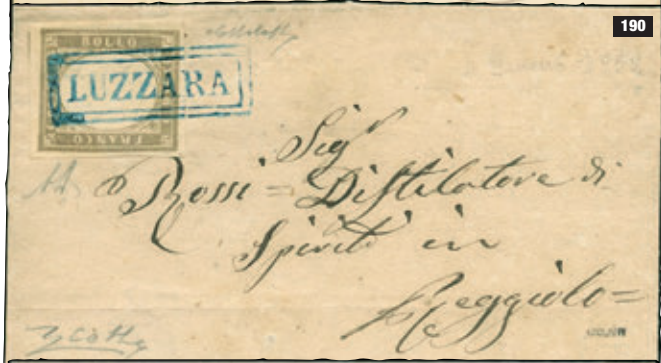 190
BOLLO
LUZZARA
FRANCO
Sigr
Rossi = Distilatore di
Spiriti in
Reggiolo =